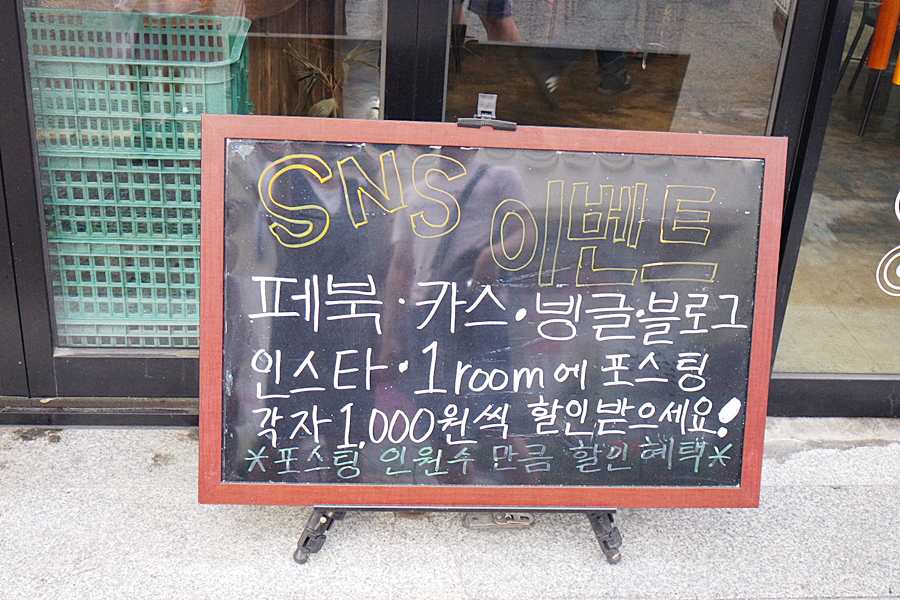 SNS 이벤트
페북·카스·빙글·블로그
인스타·1room에 포스팅
각자 1,000원씩 할인받으세요!
*포스팅 인원수 만큼 할인혜택*